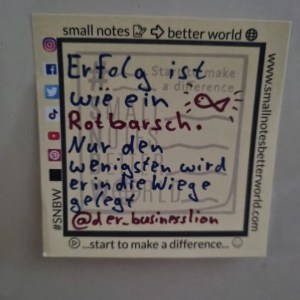 small notes better world
Erfolg ist
wie ein
Rotbarsch.
Nur den
wenigsten wird
er in die Wiege
gelegt
@der_businesslion
...start to make a difference...
#SNBW
www.smallnotesbetterworld.com